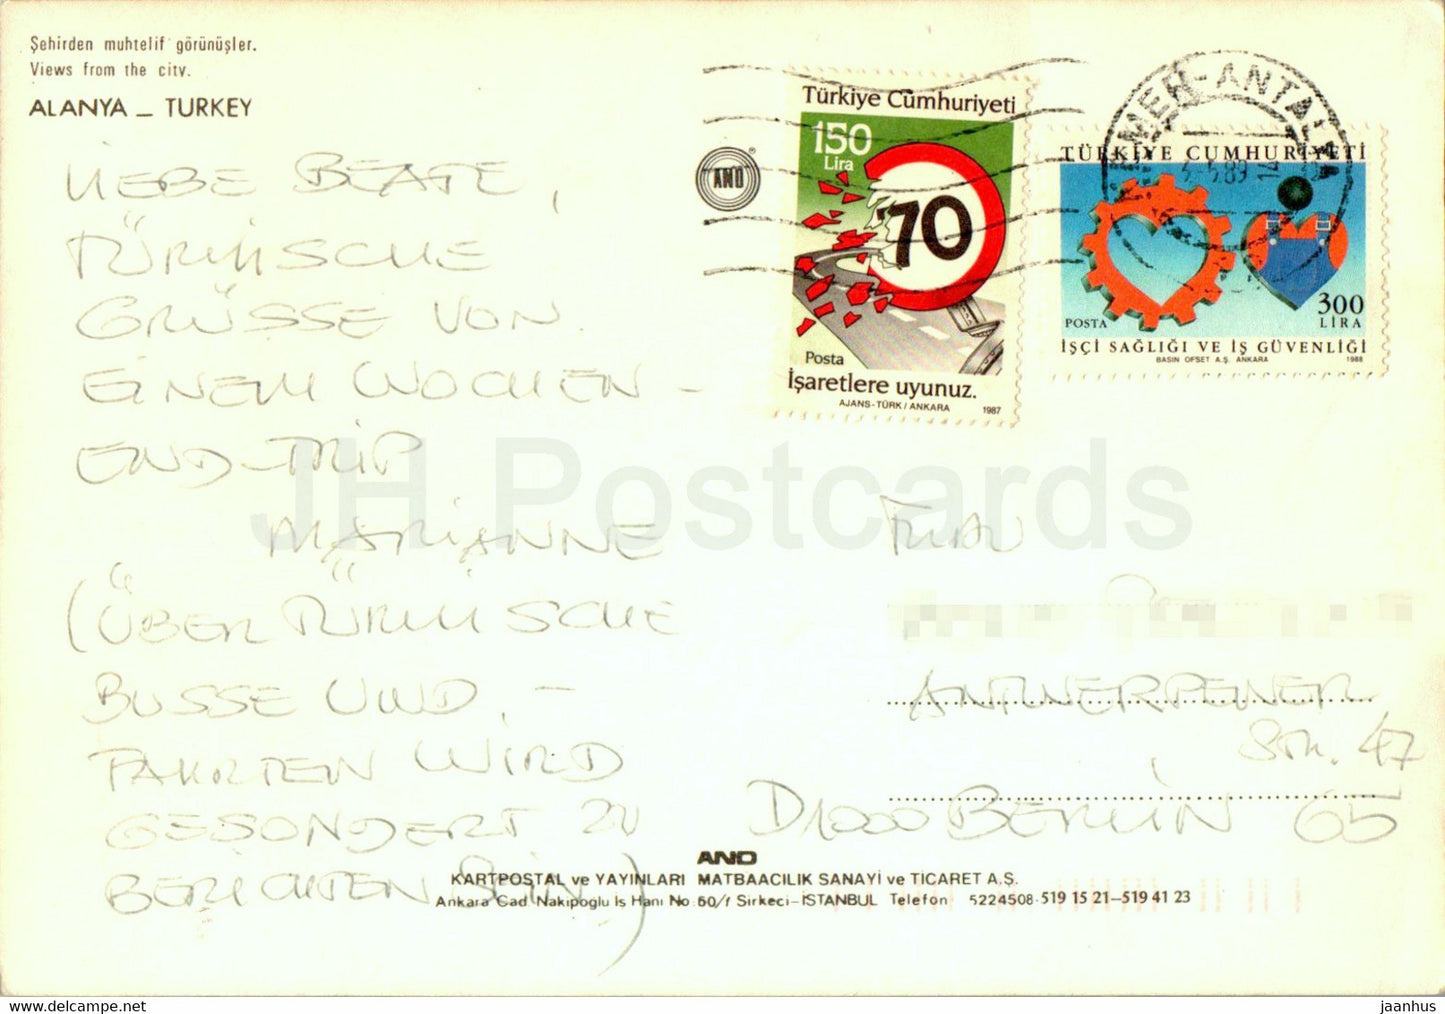 Şehirden muhtelif görünüşler.
Views from the city.
ALANYA _ TURKEY
LIEBE BEATE,
TÜRKISCHE
GRÜSSE VON
EINEM WOCHEN-
END-TRIP
MARIANNE
(ÜBER TÜRKISCHE
BUSSE UND -
FAHRTEN WIRD
GESONDERT ZU
BERICHTEN SEIN)
AND
Türkiye Cumhuriyeti
150
Lira
70
Posta
İşaretlere uyunuz.
AJANS-TÜRK / ANKARA 1987
-ANTALYA
5-5.89 14
TÜRKİYE CUMHURİYETİ
300
LİRA
POSTA
İŞÇİ SAĞLIĞI VE İŞ GÜVENLİĞİ
BASIN OFSET A.Ş. ANKARA 1988
JH Postcards
FRAU
ANTWERPENER
STR. 47
D1000 BERLIN 65
AND
KARTPOSTAL ve YAYINLARI MATBAACILIK SANAYİ ve TİCARET A.Ş.
Ankara Cad Nakipoğlu İş Hanı No 60/f Sirkeci-İSTANBUL Telefon 5224508-519 15 21-519 41 23
delcampe.net
jaanhus